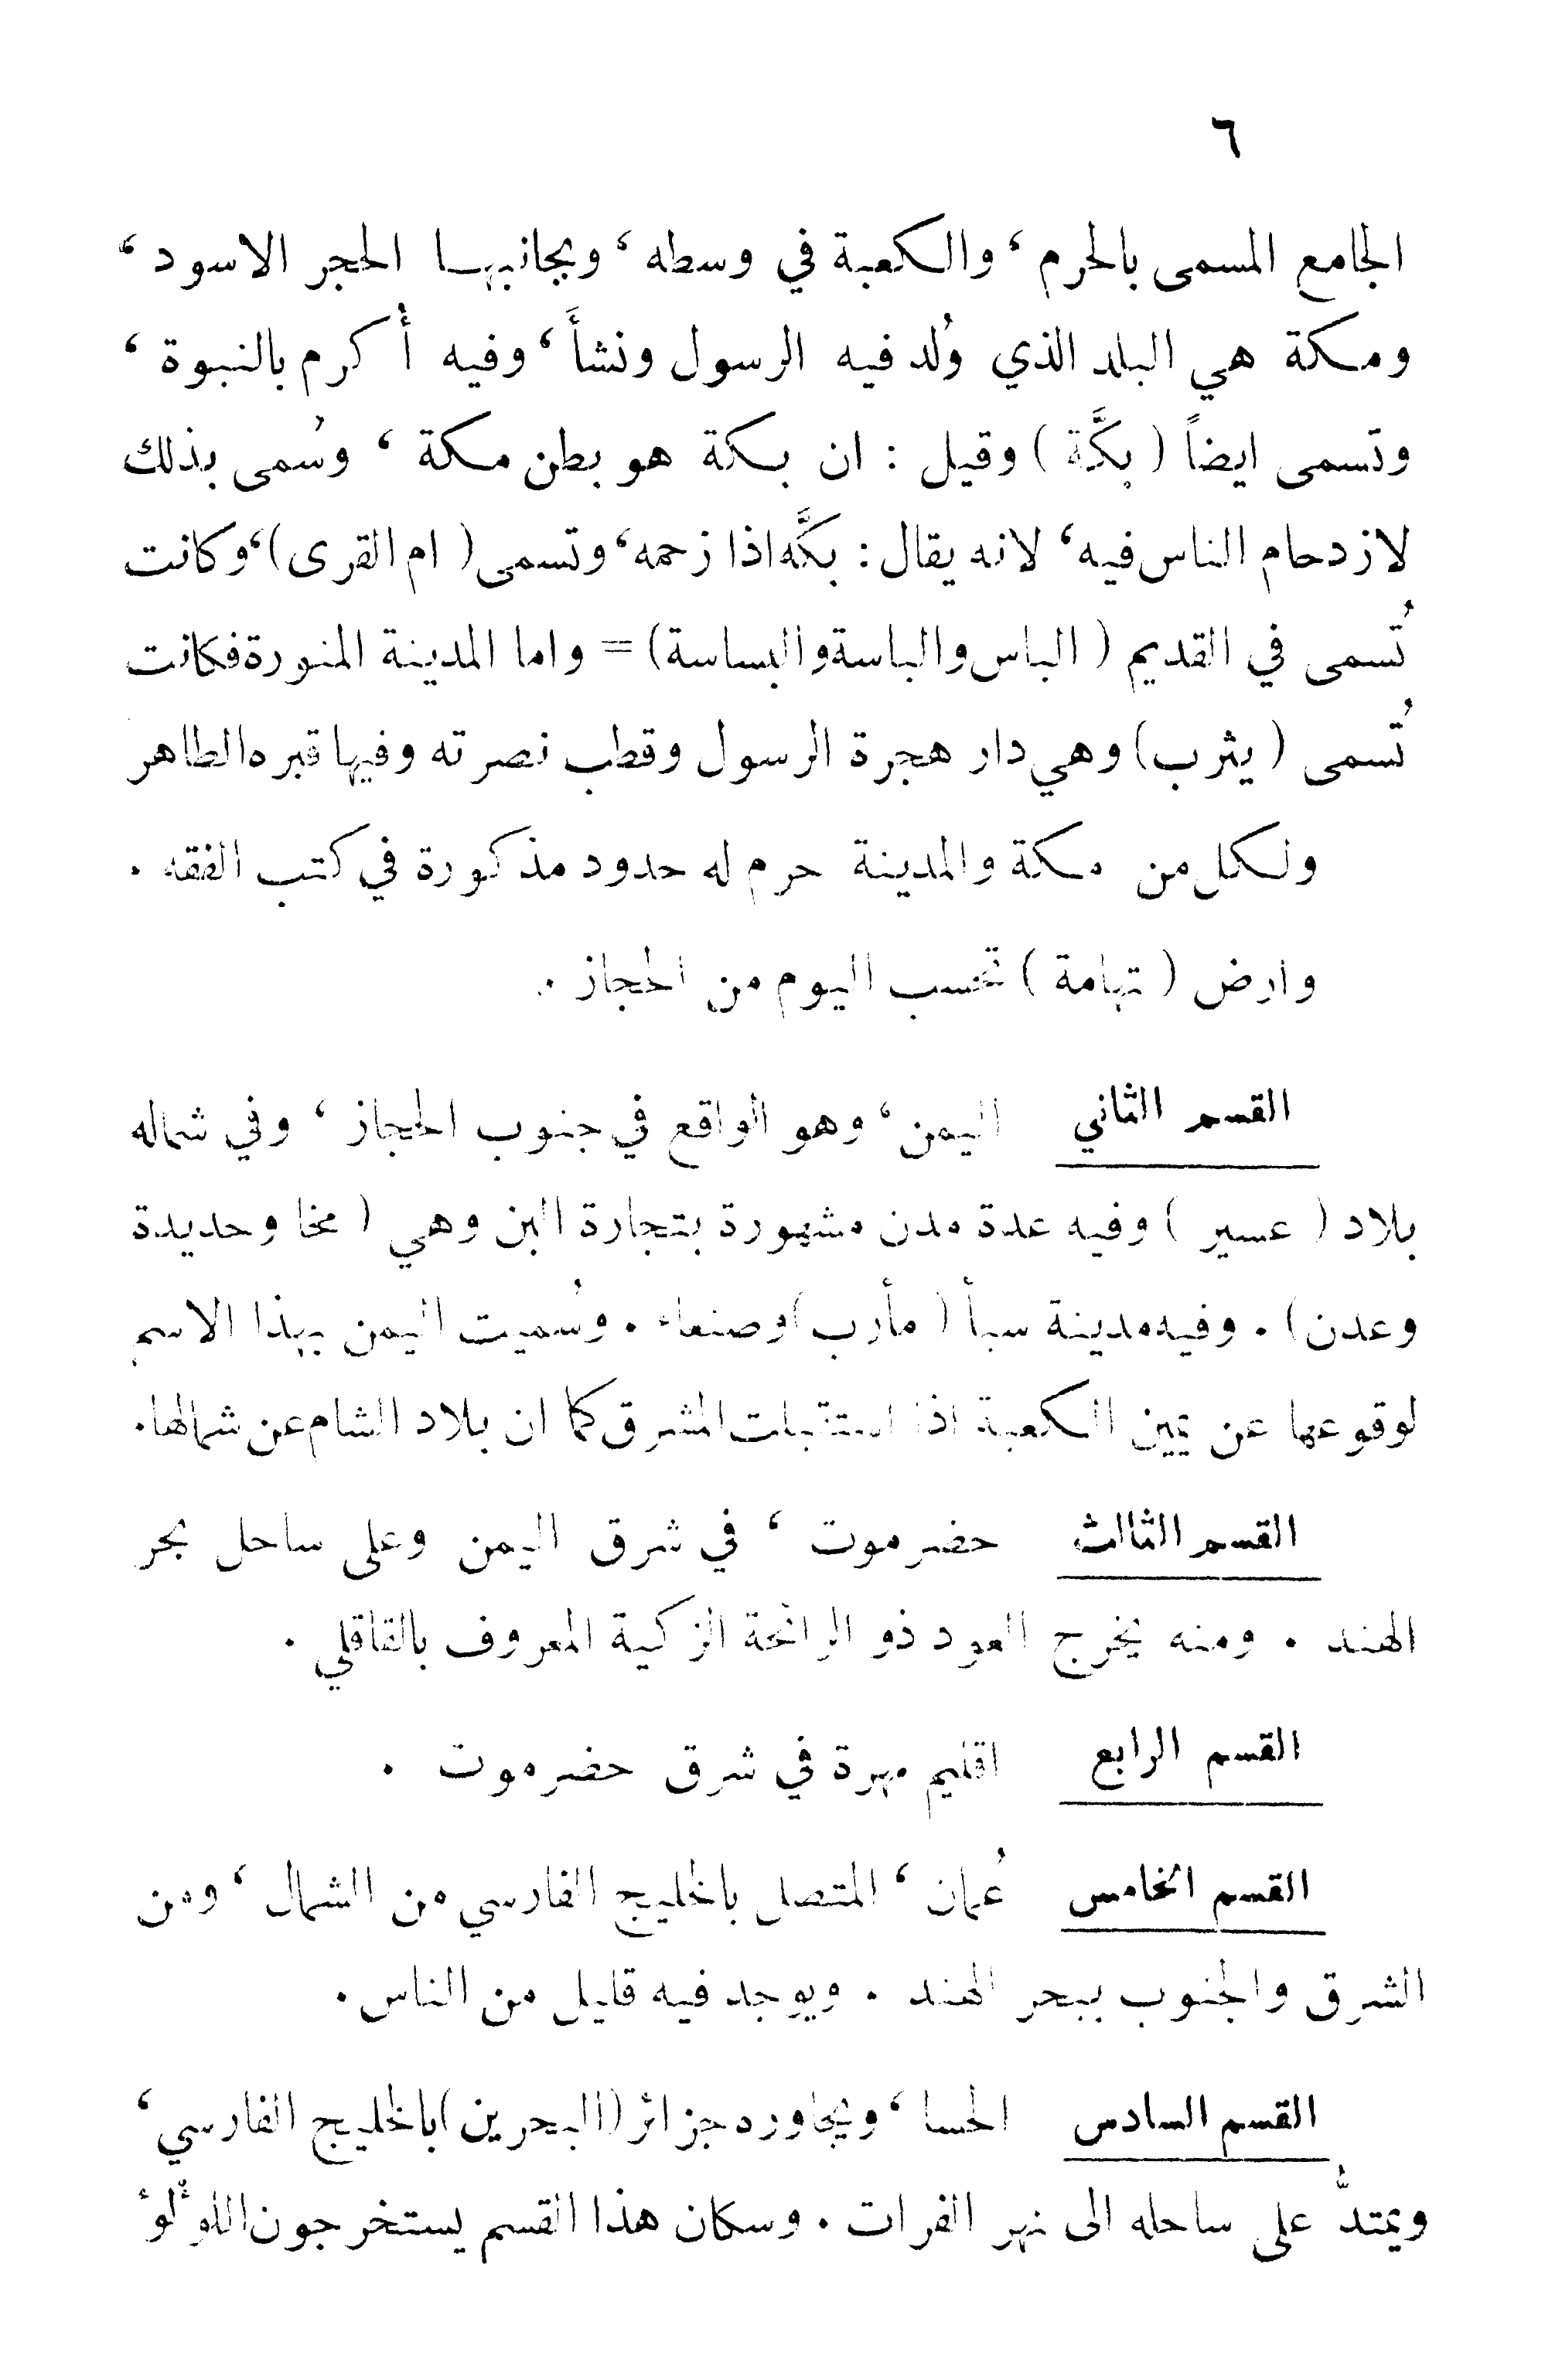 ٦
الجامع المسمى بالحرم ، والكعبة في وسطه ، وبجانبهـا الحجر الاسود ،
ومكة هي البلد الذي وُلد فيه الرسول ونشأَ ، وفيه أُكرم بالنبوة ،
وتسمى ايضاً ( بكَّة ) وقيل : ان بكة هو بطن مكة ، وسُمى بذلك
لازدحام الناس فيه ، لانه يقال : بكَّه اذا زحمه ، وتسمى ( ام القرى ) ، وكانت
تُسمى في القديم ( الباس والباسة والبساسة ) = واما المدينة المنورة فكانت
تُسمى ( يثرب ) وهي دار هجرة الرسول وقطب نصرته وفيها قبره الطاهر
ولكل من مكة والمدينة حرم له حدود مذكورة في كتب الفقه .
وارض ( تهامة ) تحسب اليوم من الحجاز .
القسم الثاني اليمن ، وهو الواقع في جنوب الحجاز ، وفي شماله
بلاد ( عسير ) وفيه عدة مدن مشهورة بتجارة البن وهي ( مخا وحديدة
وعدن ) . وفيه مدينة سبأ ( مأرب ) وصنعاء . وسُميت اليمن بهذا الاسم
لوقوعها عن يمين الكعبة اذا استقبلت المشرق كما ان بلاد الشام عن شمالها .
القسم الثالث حضرموت ، في شرق اليمن وعلى ساحل بحر
الهند . ومنه يخرج العود ذو الرائحة الزكية المعروف بالقاقلي .
القسم الرابع اقليم مهرة في شرق حضرموت .
القسم الخامس عُمان ، المتصل بالخليج الفارسي من الشمال ، ومن
الشرق والجنوب ببحر الهند . ويوجد فيه قليل من الناس .
القسم السادس الحسا ، ويجاوره جزائر ( البحرين ) بالخليج الفارسي ،
ويمتدُّ على ساحله الى نهر الفرات . وسكان هذا القسم يستخرجون اللؤلؤ